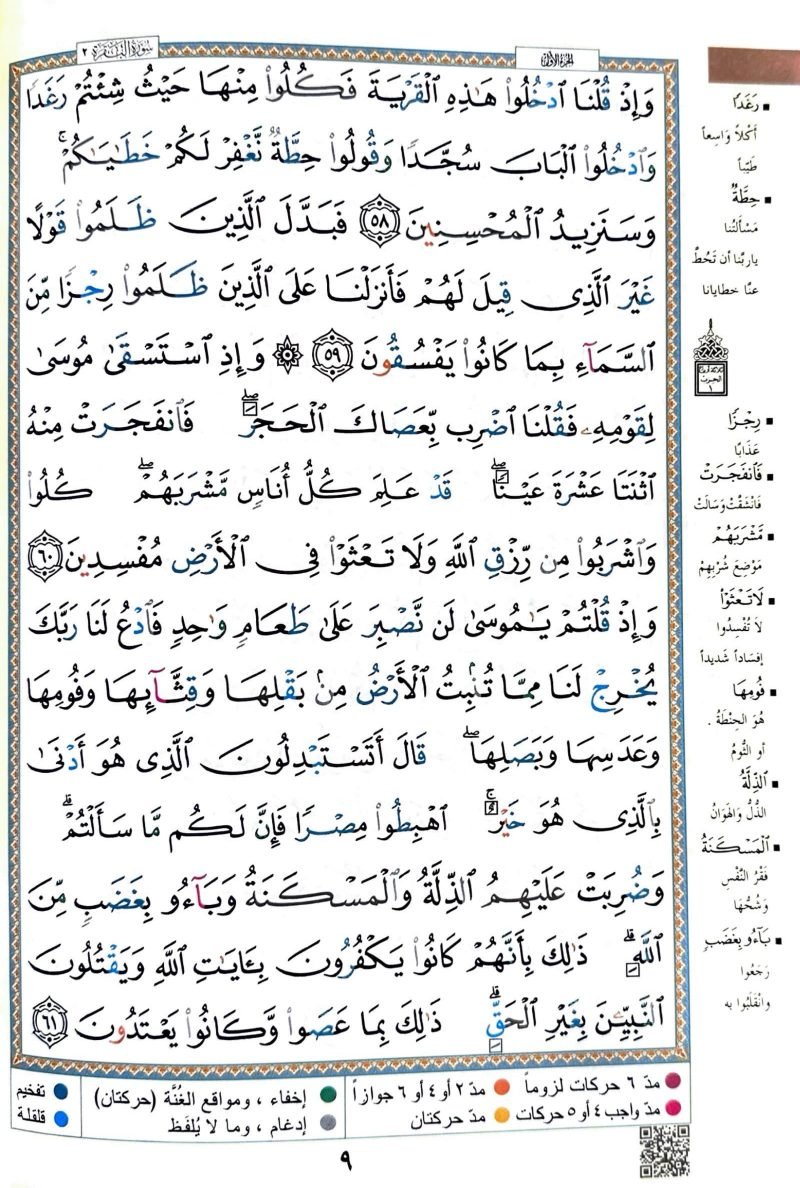 سُورَةُ الْبَقَرَةِ ٢
الجزء الأول
وَإِذْ قُلْنَا ٱدْخُلُوا۟ هَـٰذِهِ ٱلْقَرْيَةَ فَكُلُوا۟ مِنْهَا حَيْثُ شِئْتُمْ رَغَدًا
وَٱدْخُلُوا۟ ٱلْبَابَ سُجَّدًا وَقُولُوا۟ حِطَّةٌ نَّغْفِرْ لَكُمْ خَطَـٰيَـٰكُمْ ۚ
وَسَنَزِيدُ ٱلْمُحْسِنِينَ ٥٨ فَبَدَّلَ ٱلَّذِينَ ظَلَمُوا۟ قَوْلًا
غَيْرَ ٱلَّذِى قِيلَ لَهُمْ فَأَنزَلْنَا عَلَى ٱلَّذِينَ ظَلَمُوا۟ رِجْزًا مِّنَ
ٱلسَّمَآءِ بِمَا كَانُوا۟ يَفْسُقُونَ ٥٩ ۞ وَإِذِ ٱسْتَسْقَىٰ مُوسَىٰ
لِقَوْمِهِۦ فَقُلْنَا ٱضْرِب بِّعَصَاكَ ٱلْحَجَرَ ۖ فَٱنفَجَرَتْ مِنْهُ
ٱثْنَتَا عَشْرَةَ عَيْنًا ۖ قَدْ عَلِمَ كُلُّ أُنَاسٍ مَّشْرَبَهُمْ ۖ كُلُوا۟
وَٱشْرَبُوا۟ مِن رِّزْقِ ٱللَّهِ وَلَا تَعْثَوْا۟ فِى ٱلْأَرْضِ مُفْسِدِينَ ٦٠
وَإِذْ قُلْتُمْ يَـٰمُوسَىٰ لَن نَّصْبِرَ عَلَىٰ طَعَامٍ وَٰحِدٍ فَٱدْعُ لَنَا رَبَّكَ
يُخْرِجْ لَنَا مِمَّا تُنۢبِتُ ٱلْأَرْضُ مِنۢ بَقْلِهَا وَقِثَّآئِهَا وَفُومِهَا
وَعَدَسِهَا وَبَصَلِهَا ۖ قَالَ أَتَسْتَبْدِلُونَ ٱلَّذِى هُوَ أَدْنَىٰ
بِٱلَّذِى هُوَ خَيْرٌ ۚ ٱهْبِطُوا۟ مِصْرًا فَإِنَّ لَكُم مَّا سَأَلْتُمْ ۗ
وَضُرِبَتْ عَلَيْهِمُ ٱلذِّلَّةُ وَٱلْمَسْكَنَةُ وَبَآءُو بِغَضَبٍ مِّنَ
ٱللَّهِ ۗ ذَٰلِكَ بِأَنَّهُمْ كَانُوا۟ يَكْفُرُونَ بِـَٔايَـٰتِ ٱللَّهِ وَيَقْتُلُونَ
ٱلنَّبِيِّـۧنَ بِغَيْرِ ٱلْحَقِّ ۗ ذَٰلِكَ بِمَا عَصَوا۟ وَّكَانُوا۟ يَعْتَدُونَ ٦١
رَغَدًا
أَكْلًا وَاسِعاً
طَيِّباً
حِطَّةٌ
مَسْأَلَتُنَا
يا ربَّنا أن تَحُطَّ
عنَّا خطايانا
الحزب
١
رِجْزًا
عَذَابًا
فَٱنفَجَرَتْ
فَانْشَقَّتْ وَسَالَتْ
مَّشْرَبَهُمْ
مَوْضِعَ شُرْبِهِمْ
لَا تَعْثَوْا۟
لَا تُفْسِدُوا
إفْسَاداً شَدِيداً
فُومِهَا
هُوَ الحِنْطَةُ .
أو الثُّومُ
ٱلذِّلَّةُ
الذُّلُّ وَالهَوَانُ
ٱلْمَسْكَنَةُ
فَقْرُ النَّفْسِ
وَشُحُّهَا
بَآءُو بِغَضَبٍ
رَجَعُوا
وانْقَلَبُوا به
مدّ ٦ حركات لزوماً
مدّ ٢ أو ٤ أو ٦ جوازاً
إخفاء ، ومواقع الغُنَّة (حركتان)
تفخيم
مدّ واجب ٤ أو ٥ حركات
مدّ حركتان
إدغام ، وما لا يُلفَظ
قلقلة
٩